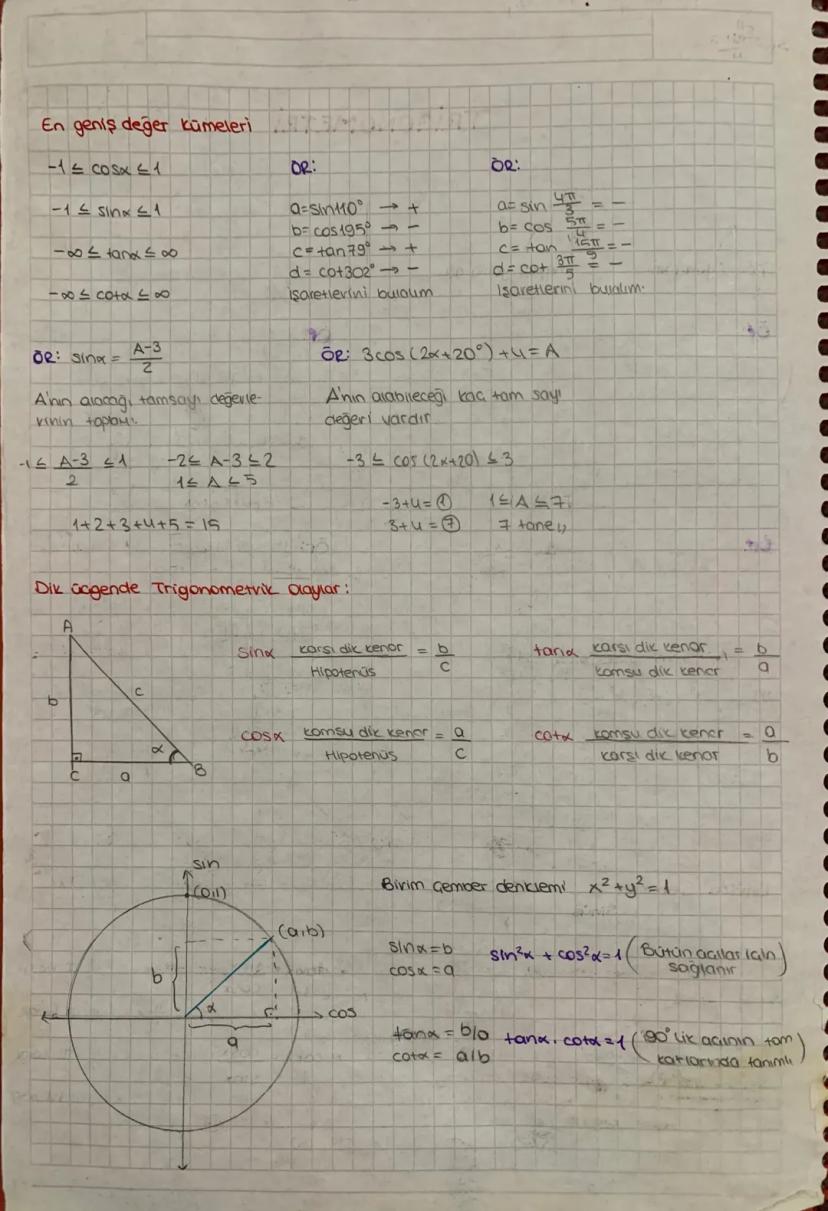 En geniş değer kümeleri
-1 ≤ cosα ≤ 1
-1 ≤ sinα ≤ 1
-∞ ≤ tanα ≤ ∞
-∞ ≤ cotα ≤ ∞
ÖR:
a = sin110° → +
b = cos195° → -
c = tan79° → +
d = cot302° → -
işaretlerini bulalım
ÖR:
a = sin 4π/3 = -
b = cos 5π/4 = -
c = tan 15π/9 = -
d = cot 3π/5 = -
işaretlerini bulalım.
ÖR: sinα = A-3/2
A'nın alacağı tamsayı değerle-
rinin toplamı.
-1 ≤ A-3/2 ≤ 1 -2 ≤ A-3 ≤ 2
1 ≤ A ≤ 5
1+2+3+4+5 = 15
ÖR: 3cos(2α+20°)+4 = A
A'nın alabileceği kaç tam sayı
değeri vardır
-3 ≤ cos(2x+20) ≤ 3
-3+4 = 1 1 ≤ A ≤ 7
3+4 = 7 7 tane,,
Dik üçgende Trigonometrik Olaylar:
A
b
c
α
C
a
B
sinα karşı dik kenar/Hipotenüs = b/c
tanα karşı dik kenar/komşu dik kenar = b/a
cosα komşu dik kenar/Hipotenüs = a/c
cotα komşu dik kenar/karşı dik kenar = a/b
sin
(0,1)
(a,b)
b
α
cos
a
Birim Çember denklemi x²+y²=1
sinα = b
cosα = a
sin²α + cos²α = 1 (Bütün açılar için
sağlanır)
tanα = b/a
cotα = a/b
tanα . cotα = 1 (90° lik açının tam
katlarında tanımlı)